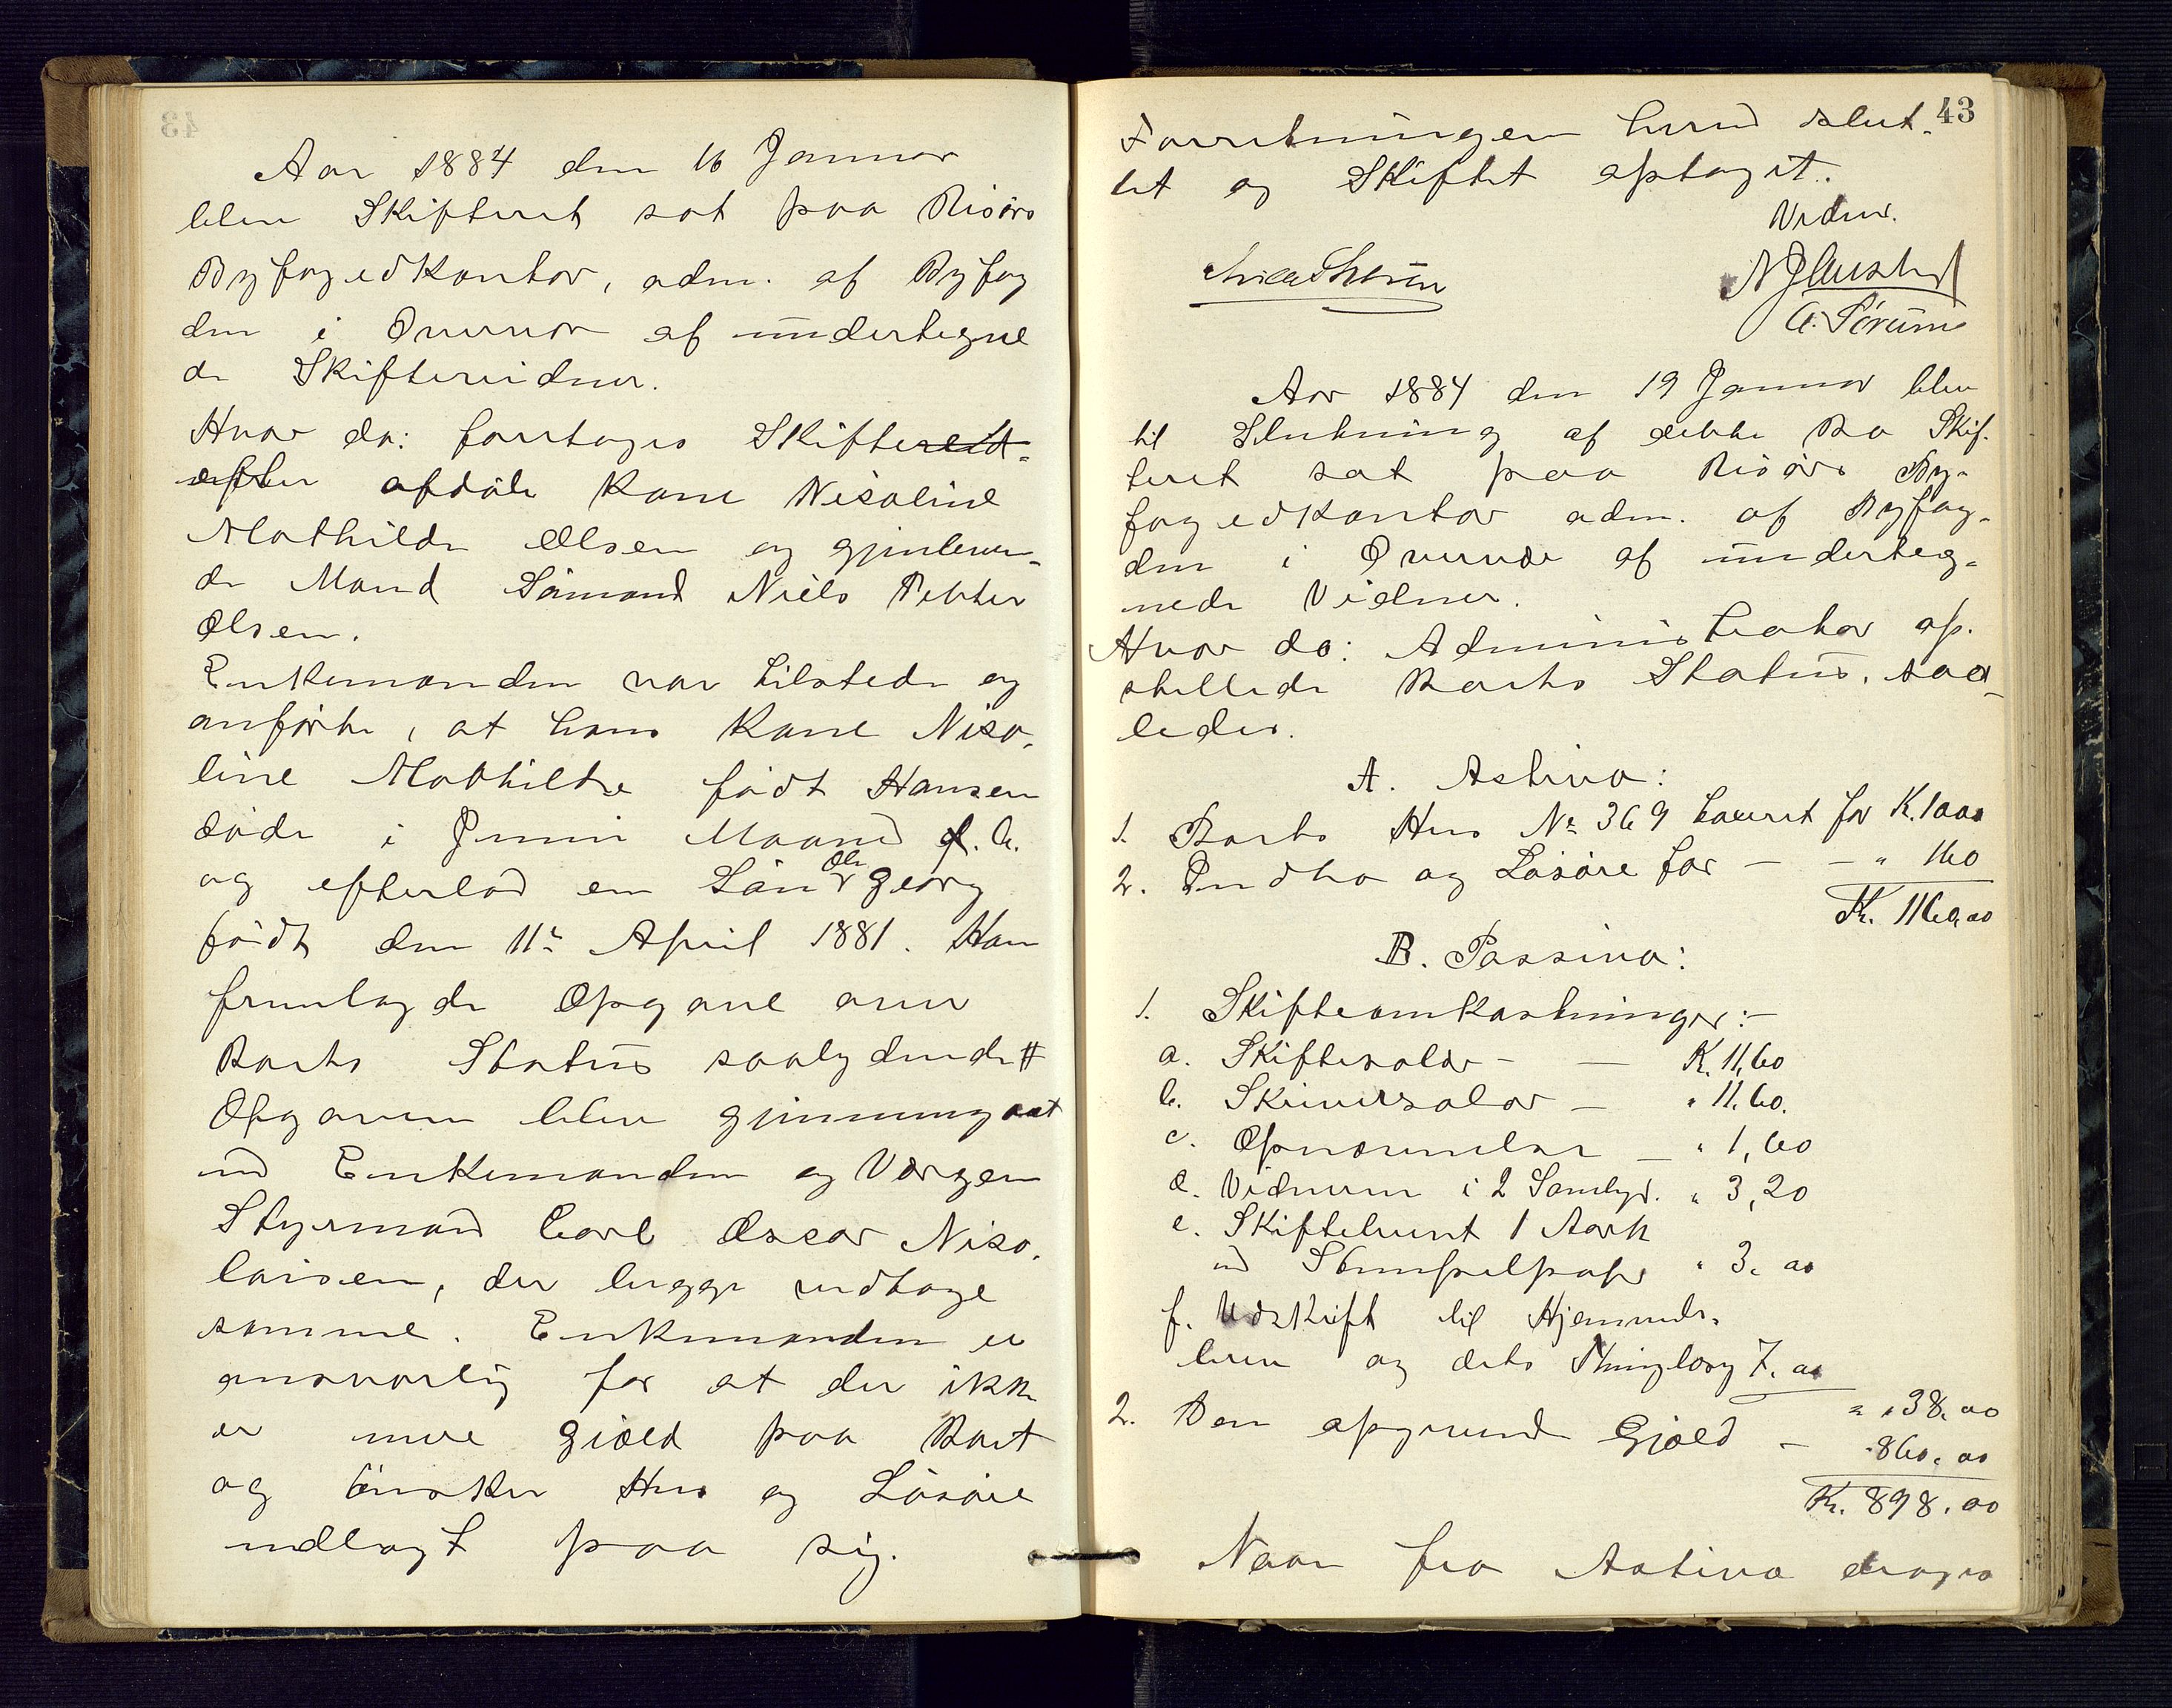 Aar 1884 den 16 Januar
blev Skifteret sat paa Risørs
Byfogedkontor, adm. af Byfog
den i Overvær af undertegne
de Skiftevidner.
Hvor da: foretoges Skifteret
efter afdøde Kone Nisoline
Mathilde Olsen og gjenleven-
de Mand Sømand Niels Petter
Olsen.
Enkemanden var tilstede og
anførte, at hans Kone Niso-
line Mathilde født Hansen
døde i Juni Maaned f. A.
og efterlod en Søn Ole Georg
født den 11te April 1881. Han
fremlagde Opgave over
Boets Status saalydende #
Opgaven blev gjennemgaaet
med Enkemanden og Værgen
Styrmand Carl Oscar Nico-
laisen, der begge vedtoge
samme. Enkemanden er
ansvarlig for at der ikke
er mere Gjæld paa Boet
og ønsker Hus og Løsøre
udlagt paa sig.
43
Forretningen herved slut-
tet og Skiftet optaget.
Vidner.
A. Sørum
Aar 1884 den 19 Januar blev
til Slutning af dette Bo Skif-
teret sat paa Risørs By-
fogedkontor adm. af Byfog-
den i Overvær af underteg-
nede Vidner.
Hvor da: Administrator op-
stillede Boets Status, saa-
ledes.
A. Activa:
1. Boets Hus No 369 taxeret for K. 1000
2. Indbo og Løsøre for — — " 160
Kr. 1160,00
B. Passiva:
1. Skifteomkostninger: —
a. Skiftesalær — — K. 11,60
b. Skriversalær — " 11.60.
c. Opnævnelse — " 1,60
d. Vidnerne i 2 Samlgr. " 3,20
e. Skiftebrevet 1 Aark
med Stempelpapir " 3. 00
f. Udskrift til Hjemmels-
brev og dets Thinglæsg 7. 00
" " 38. 00
2. Den opgivende Gjæld — " 860. 00
Kr. 898. 00
Naar fra Activa drages